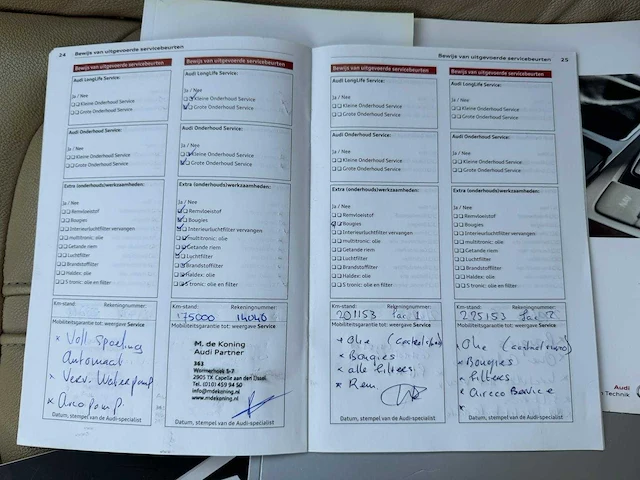 24 Bewijs van uitgevoerde servicebeurten
Bewijs van uitgevoerde servicebeurten
Audi LongLife Service:
Ja / Nee
Kleine Onderhoud Service
Grote Onderhoud Service
Audi Onderhoud Service:
Ja / Nee
Kleine Onderhoud Service
Grote Onderhoud Service
Extra (onderhouds)werkzaamheden:
Ja / Nee
Remvloeistof
Bougies
Interieurluchtfilter vervangen
multitronic: olie
Getande riem
Luchtfilter
Brandstoffilter
Haldex: olie
S tronic: olie en filter
Km-stand: Rekeningnummer:
Mobiliteitsgarantie tot: weergave Service
* Voll Spoeling
Automaat
* Verv. Waterpomp
* Datum, stempel van de Audi-specialist
Bewijs van uitgevoerde servicebeurten
Audi LongLife Service:
Ja / Nee
Kleine Onderhoud Service
Grote Onderhoud Service
Audi Onderhoud Service:
Ja / Nee
Kleine Onderhoud Service
Grote Onderhoud Service
Extra (onderhouds)werkzaamheden:
Ja / Nee
Remvloeistof
Bougies
Interieurluchtfilter vervangen
multitronic: olie
Getande riem
Luchtfilter
Brandstoffilter
Haldex: olie
S tronic: olie en filter
Km-stand: Rekeningnummer:
175000
Mobiliteitsgarantie tot: weergave Service
M. de Koning
Audi Partner
363
Wormerhoek 5-7
2905 TX Capelle aan den IJssel
Tel. (010) 459 94 50
info@mdekoning.nl
www.mdekoning.nl
Datum, stempel van de Audi-specialist
Bewijs van uitgevoerde servicebeurten 25
Bewijs van uitgevoerde servicebeurten
Audi LongLife Service:
Ja / Nee
Kleine Onderhoud Service
Grote Onderhoud Service
Audi Onderhoud Service:
Ja / Nee
Kleine Onderhoud Service
Grote Onderhoud Service
Extra (onderhouds)werkzaamheden:
Ja / Nee
Remvloeistof
Bougies
Interieurluchtfilter vervangen
multitronic: olie
Getande riem
Luchtfilter
Brandstoffilter
Haldex: olie
S tronic: olie en filter
Km-stand: Rekeningnummer:
201153
Mobiliteitsgarantie tot: weergave Service
* Olie
* Bougies
* alle filters
* Rem
Datum, stempel van de Audi-specialist
Bewijs van uitgevoerde servicebeurten
Audi LongLife Service:
Ja / Nee
Kleine Onderhoud Service
Grote Onderhoud Service
Audi Onderhoud Service:
Ja / Nee
Kleine Onderhoud Service
Grote Onderhoud Service
Extra (onderhouds)werkzaamheden:
Ja / Nee
Remvloeistof
Bougies
Interieurluchtfilter vervangen
multitronic: olie
Getande riem
Luchtfilter
Brandstoffilter
Haldex: olie
S tronic: olie en filter
Km-stand: Rekeningnummer:
225153
Mobiliteitsgarantie tot: weergave Service
* Olie
* Bougies
* Filters
* Aircco Service
*
Datum, stempel van de Audi-specialist
Audi
Technik